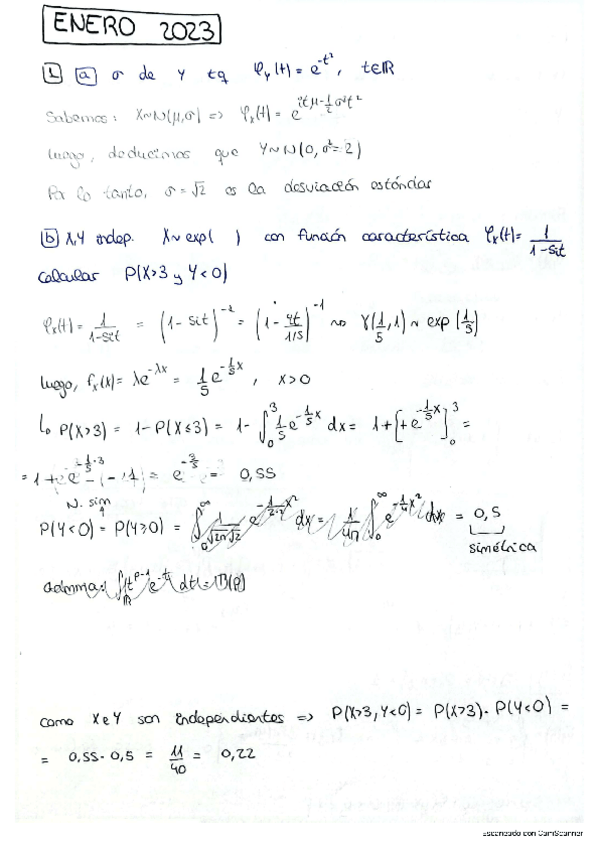 ENERO 2023
1 a σ de Y tq φ_Y(t) = e^{-t²}, t∈ℝ
Sabemos: X~N(μ,σ) => φ_X(t) = e^{itμ-½σ²t²}
luego, deducimos que Y~N(0, σ²=2)
Por lo tanto, σ = √2 es la desviación estándar
b X,Y indep. X~exp( ) con función característica φ_X(t) = 1/(1-5it)
calcular P(X>3 y Y<0)
φ_X(t) = 1/(1-5it) = (1-5it)^{-1} = (1 - it/(1/5))^{-1} ~> γ(1/5,1) ~ exp(1/5)
luego, f_X(x) = λe^{-λx} = 1/5 e^{-1/5x}, x>0
↳ P(X>3) = 1-P(X≤3) = 1-∫₀³ 1/5 e^{-1/5x} dx = 1+[+e^{-1/5x}]₀³ =
= 1+e^{-1/5·3} - (-1) = e^{-3/5} = 0,55
N. sim
P(Y<0) = P(Y≥0) = ∫₀^∞ 1/(√2π√2) e^{-1/(2·2)x²} dx = 1/4π ∫₀^∞ e^{-1/4x²} dx = 0,5
simétrica
Gamma: ∫_ℝ t^{p-1} e^{-t} dt = Γ(p)
como X e Y son independientes => P(X>3, Y<0) = P(X>3) · P(Y<0) =
= 0,55 · 0,5 = 11/40 = 0,22
Escaneado con CamScanner